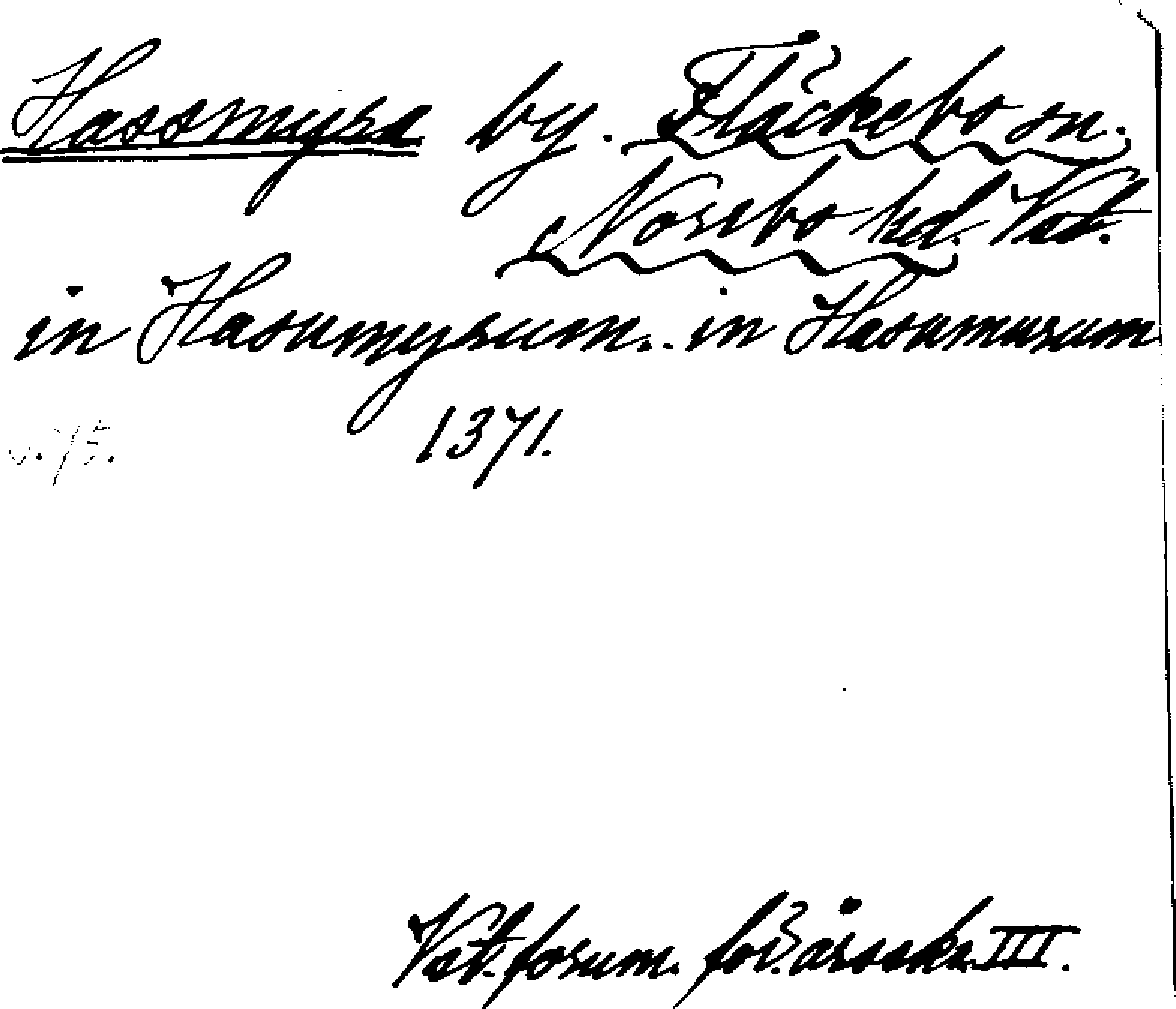 Hassmyra by. Fläckebo sn.
Norebo hd. Vstl.
in Hasumyrum. in Hasumurum
s. 75. 1371.
Vst. fornm. för. årsskr. III.